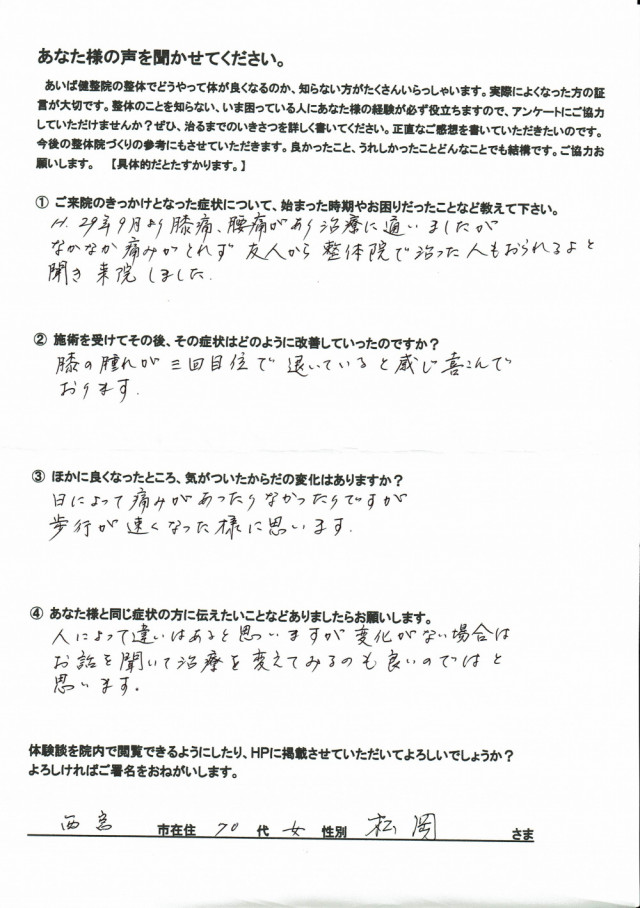 あなた様の声を聞かせてください。
あいば健整院の整体でどうやって体が良くなるのか、知らない方がたくさんいらっしゃいます。実際によくなった方の証
言が大切です。整体のことを知らない、いま困っている人にあなた様の経験が必ず役立ちますので、アンケートにご協力
していただけませんか？ぜひ、治るまでのいきさつを詳しく書いてください。正直なご感想を書いていただきたいのです。
今後の整体院づくりの参考にもさせていただきます。良かったこと、うれしかったことどんなことでも結構です。ご協力お
願いします。 【具体的だとたすかります。】
① ご来院のきっかけとなった症状について、始まった時期やお困りだったことなど教えて下さい。
H.29年9月より膝痛、腰痛があり治療に通いましたが
なかなか痛みがとれず友人から整体院で治った人もおられるよと
聞き来院しました.
② 施術を受けてその後、その症状はどのように改善していったのですか？
膝の腫れが三回目位で退いていると感じ喜こんで
おります.
③ ほかに良くなったところ、気がついたからだの変化はありますか？
日によって痛みがあったりなかったりですが
歩行が速くなった様に思います.
④ あなた様と同じ症状の方に伝えたいことなどありましたらお願いします。
人によって違いはあると思いますが変化がない場合は
お話を聞いて治療を変えてみるのも良いのではと
思います.
体験談を院内で閲覧できるようにしたり、HPに掲載させていただいてよろしいでしょうか？
よろしければご署名をおねがいします。
西宮 市在住 70 代 女 性別 松岡 さま